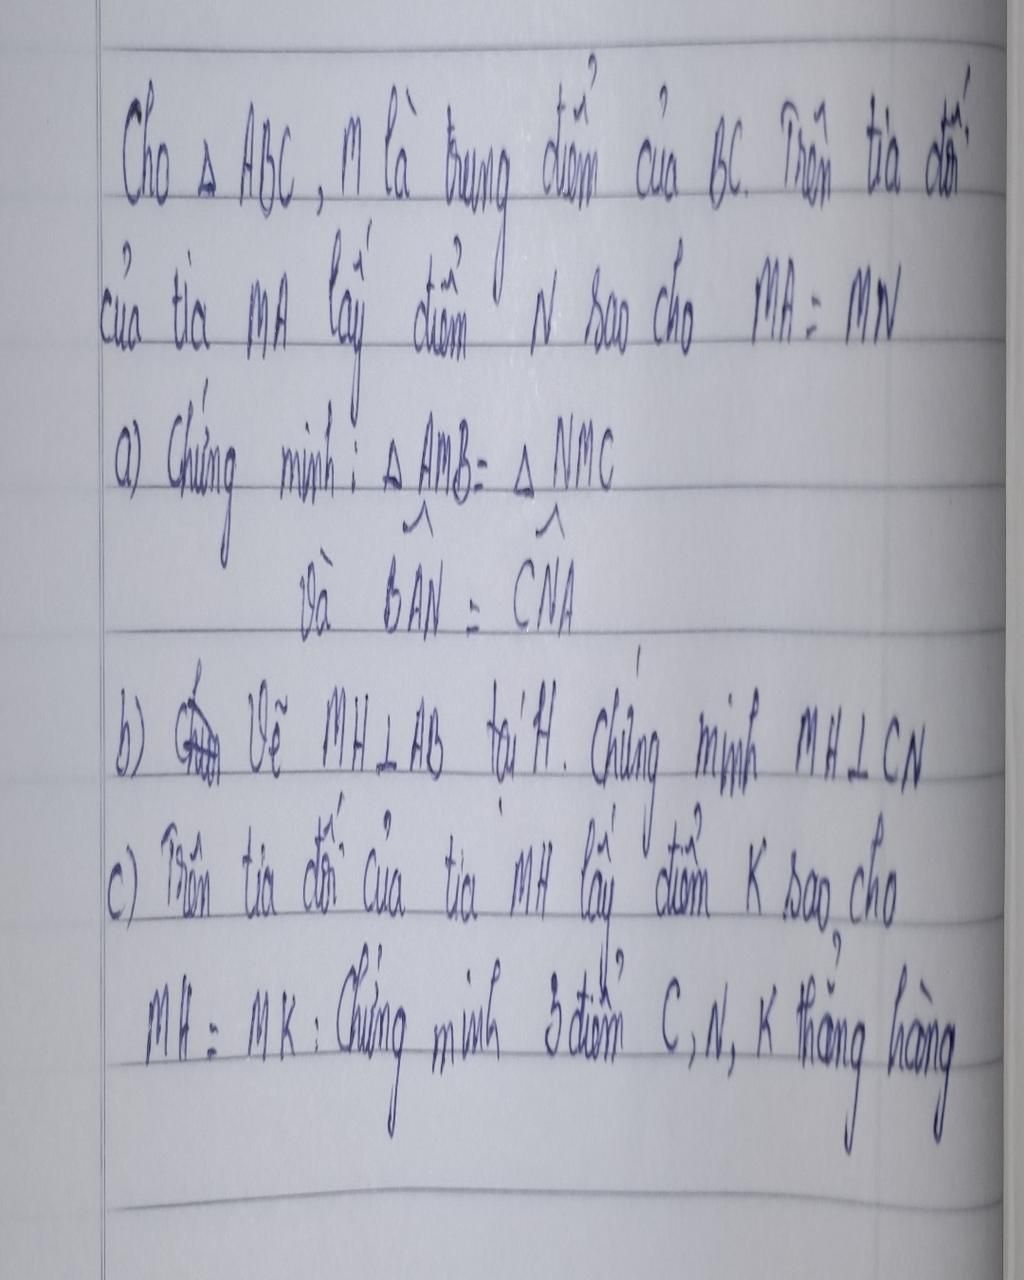 Cho Δ ABC, M là trung điểm của BC. Trên tia đối
của tia MA lấy điểm N sao cho MA = MN
a) Chứng minh: Δ AMB = Δ NMC
và B̂AN = ĈNA
b) Vẽ MH ⊥ AB tại H. Chứng minh MH ⊥ CN
c) Trên tia đối của tia MH lấy điểm K sao cho
MH = MK. Chứng minh 3 điểm C, N, K thẳng hàng